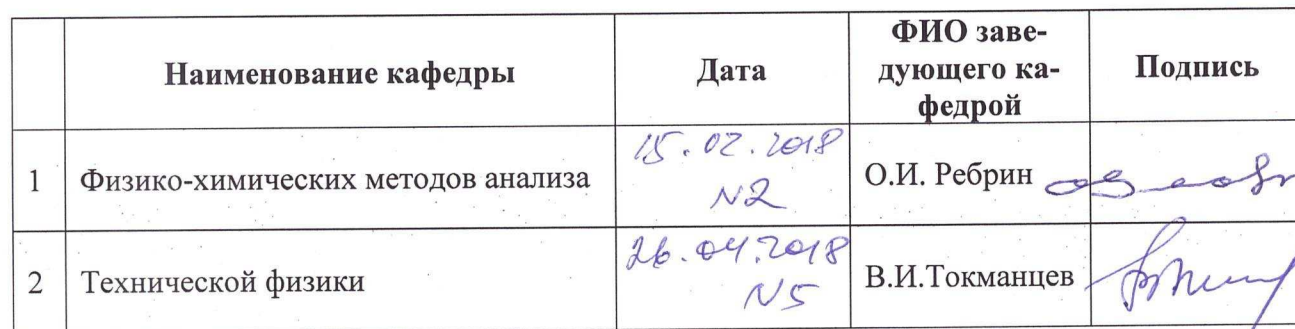 Наименование кафедры
Дата
ФИО заве-
дующего ка-
федрой
Подпись
1
Физико-химических методов анализа
15.02.2018
N2
О.И. Ребрин
2
Технической физики
26.04.2018
N5
В.И.Токманцев